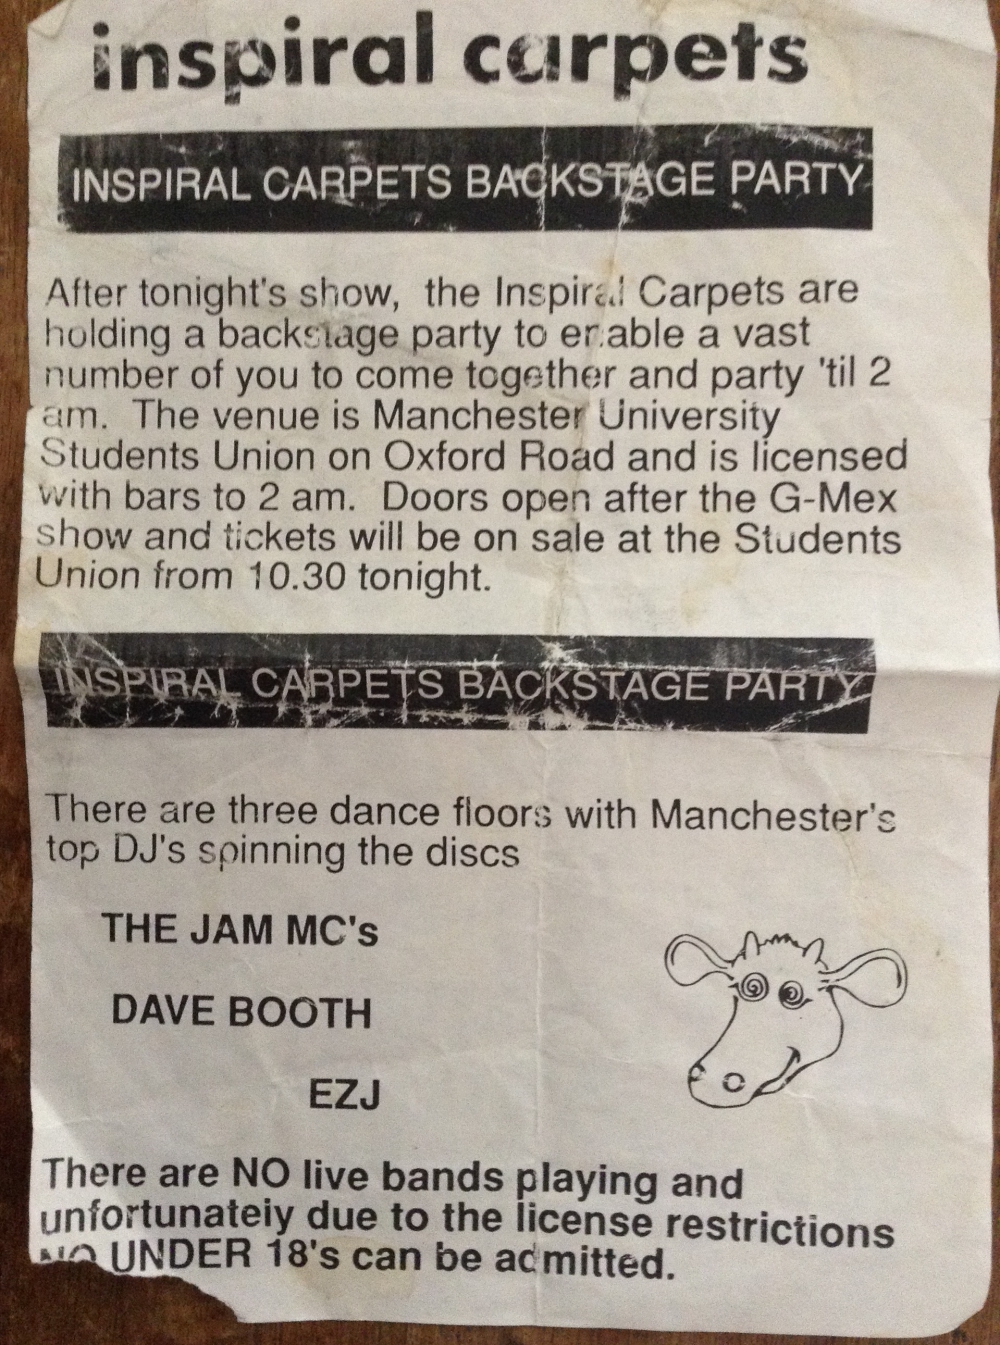 inspiral carpets
INSPIRAL CARPETS BACKSTAGE PARTY
After tonight's show, the Inspiral Carpets are
holding a backstage party to enable a vast
number of you to come together and party 'til 2
am. The venue is Manchester University
Students Union on Oxford Road and is licensed
with bars to 2 am. Doors open after the G-Mex
show and tickets will be on sale at the Students
Union from 10.30 tonight.
INSPIRAL CARPETS BACKSTAGE PARTY
There are three dance floors with Manchester's
top DJ's spinning the discs
THE JAM MC's
DAVE BOOTH
EZJ
There are NO live bands playing and
unfortunately due to the license restrictions
NO UNDER 18's can be admitted.